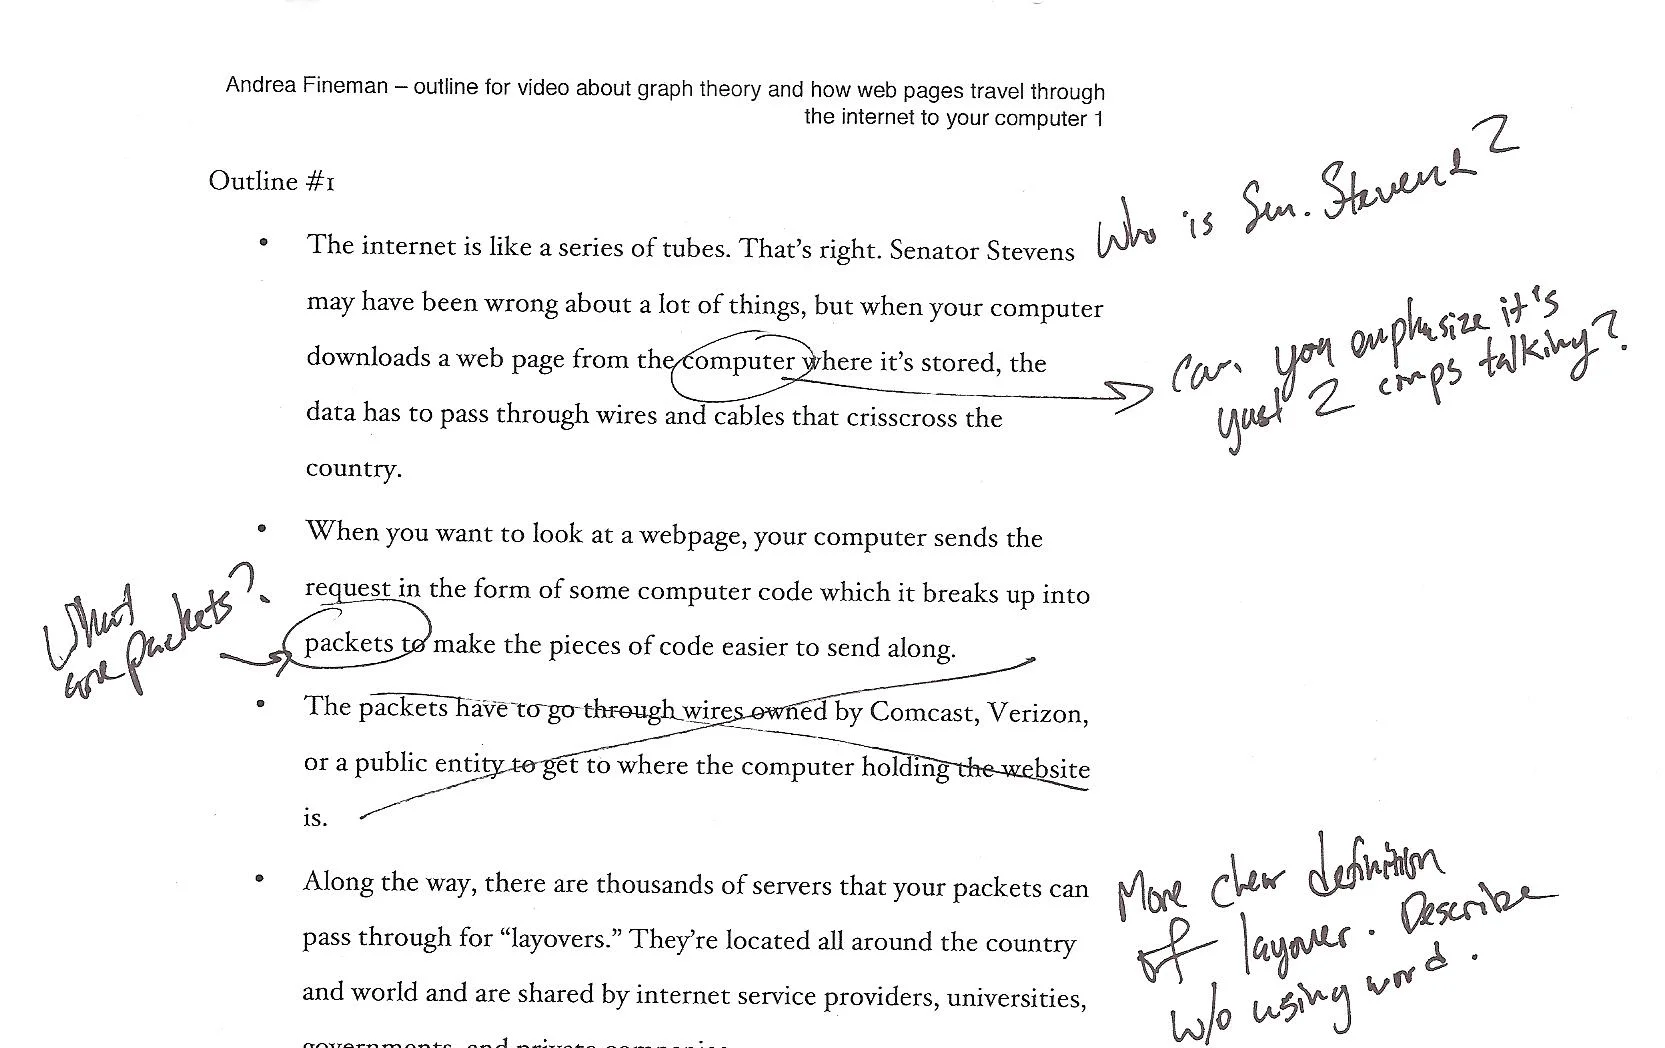 Andrea Fineman – outline for video about graph theory and how web pages travel through
the internet to your computer 1
Outline #1
• The internet is like a series of tubes. That's right. Senator Stevens
Who is Sen. Stevens?
may have been wrong about a lot of things, but when your computer
downloads a web page from the computer where it's stored, the
Can you emphasize it's
just 2 comps talking?
data has to pass through wires and cables that crisscross the
country.
• When you want to look at a webpage, your computer sends the
request in the form of some computer code which it breaks up into
What
are packets?
packets to make the pieces of code easier to send along.
• The packets have to go through wires owned by Comcast, Verizon,
or a public entity to get to where the computer holding the website
is.
• Along the way, there are thousands of servers that your packets can
pass through for “layovers.” They're located all around the country
and world and are shared by internet service providers, universities,
More clear definition
of layover. Describe
w/o using word.
governments, and private companies